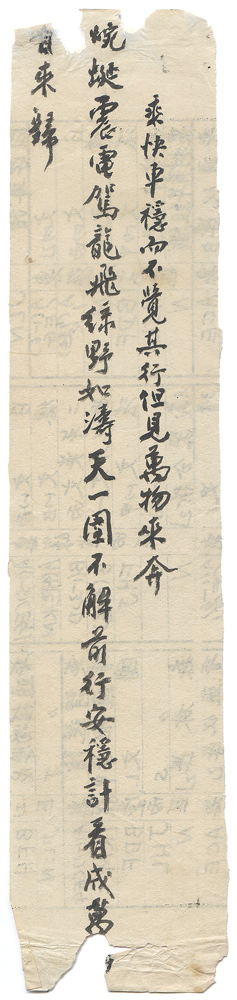 乘快平穩而不覺其行但見萬物來奔
蜿蜒震電駕龍飛綠野如濤天一圍不解前行安穩計看成萬
自來歸